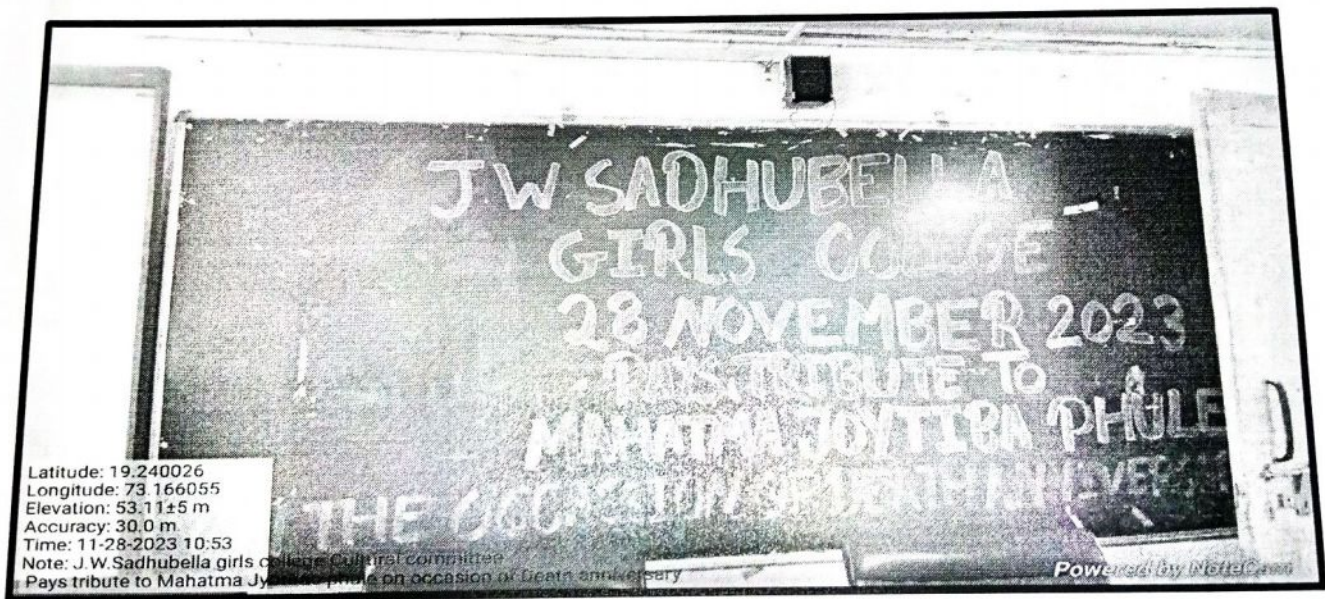 J.W SADHUBELLA
GIRLS COLLEGE
28 NOVEMBER 2023
PAYS TRIBUTE TO
MAHATMA JOYTIBA PHULE
THE OCCASSION OF DEATH ANNIVERS
Latitude: 19.240026
Longitude: 73.166055
Elevation: 53.11±5 m
Accuracy: 30.0 m
Time: 11-28-2023 10:53
Note: J.W.Sadhubella girls college Cultural committee
Pays tribute to Mahatma phule on occasion of Death anniversary
Powered by NoteCam